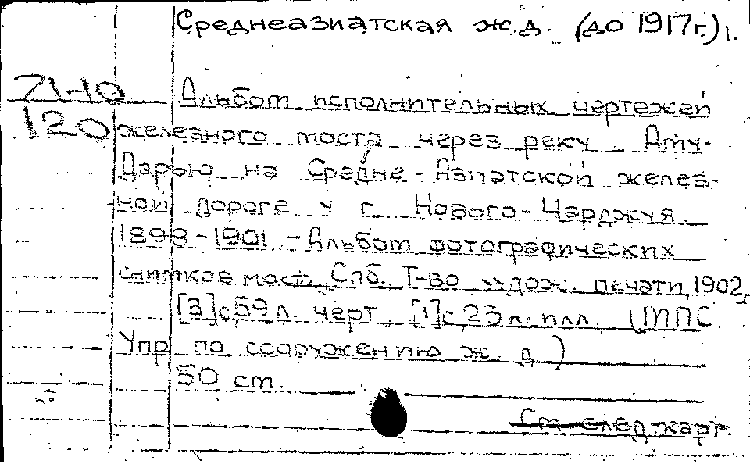 Среднеазиатская ж.д. (до 1917г.)
71-10
120
Альбом исполнительных чертежей
железного моста через реку Аму-
Дарью на Средне-Азиатской желез-
ной дороге у г. Нового-Чарджуя
1898-1901. - Альбом фотографических
снимков моста. Спб. Т-во худож. печати, 1902,
[3]с, 59 л. черт., [1]с, 23 л. илл. (МПС
Упр. по сооружению ж. д.)
50 ст.
См. след. карт.